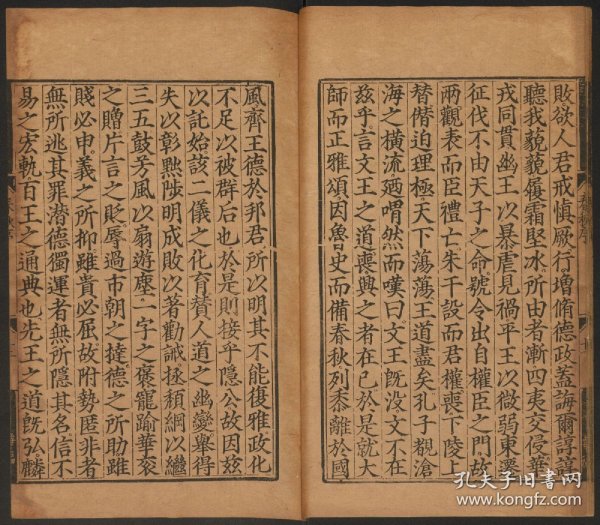 敗欲人君戒慎厥行增脩德政蓋誨爾諄諄
聽我藐藐履霜堅冰所由者漸四夷交侵華
戎同貫幽王以暴虐見禍平王以微弱東遷
征伐不由天子之命號令出自權臣之門故
兩觀表而臣禮亡朱干設而君權喪下陵上
替僭逼理極天下蕩蕩王道盡矣孔子覩滄
海之橫流廼喟然而嘆曰文王旣没文不在
兹乎言文王之道喪興之者在已於是就大
師而正雅頌因魯史而備春秋列黍離於國
風齊王德於邦君所以明其不能復雅政化
不足以被群后也於是則接乎隱公故因兹
以託始該二儀之化育賛人道之幽變舉得
失以彰黜陟明成敗以著勸誡拯頹綱以繼
三五鼓芳風以扇遊塵一字之褒寵踰華袞
之贈片言之貶辱過市朝之撻德之所助雖
賤必申義之所抑雖貴必屈故附勢匿非者
無所逃其罪潜德獨運者無所隱其名信不
易之宏軌百王之通典也先王之道旣弘麟
孔夫子旧书网
www.kongfz.com